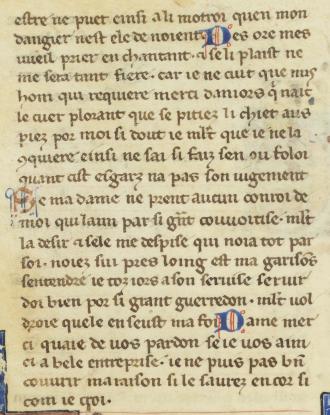 estre ne puet einsi a li motroi quen mon
dangier nest ele de noient Des ore mes
vueil prier en chantant · a se li plaist ne
me sera tant fiere · car ie ne cuit que nus
hom qui requiere merci damors q̃ nait
le cuer plorant que se pitiez li chiet aus
piez por moi si dout ie ml̃t que ie ne la
ꝯquiere einsi ne sai si faiz sen ou foloi
quant cist esgarz na pas son iugement
Se ma dame ne prent aucun conroi de
moi qui laim par si gñt couuoitise · ml̃t
la desir a sele me despise qui noia tot par
soi · noiez sui pres loing est ma garisõs
sentendre ie toz iors a son seruise seruir
doi bien por si grant guerredon · ml̃t uol
droie quele en seust ma foi Dame mer
ci quaie de uos pardon se ie uos aim
ci a bele entreprise · ie ne puis pas bñ
couurir ma raison si le saurez encor si
com ie croi ·